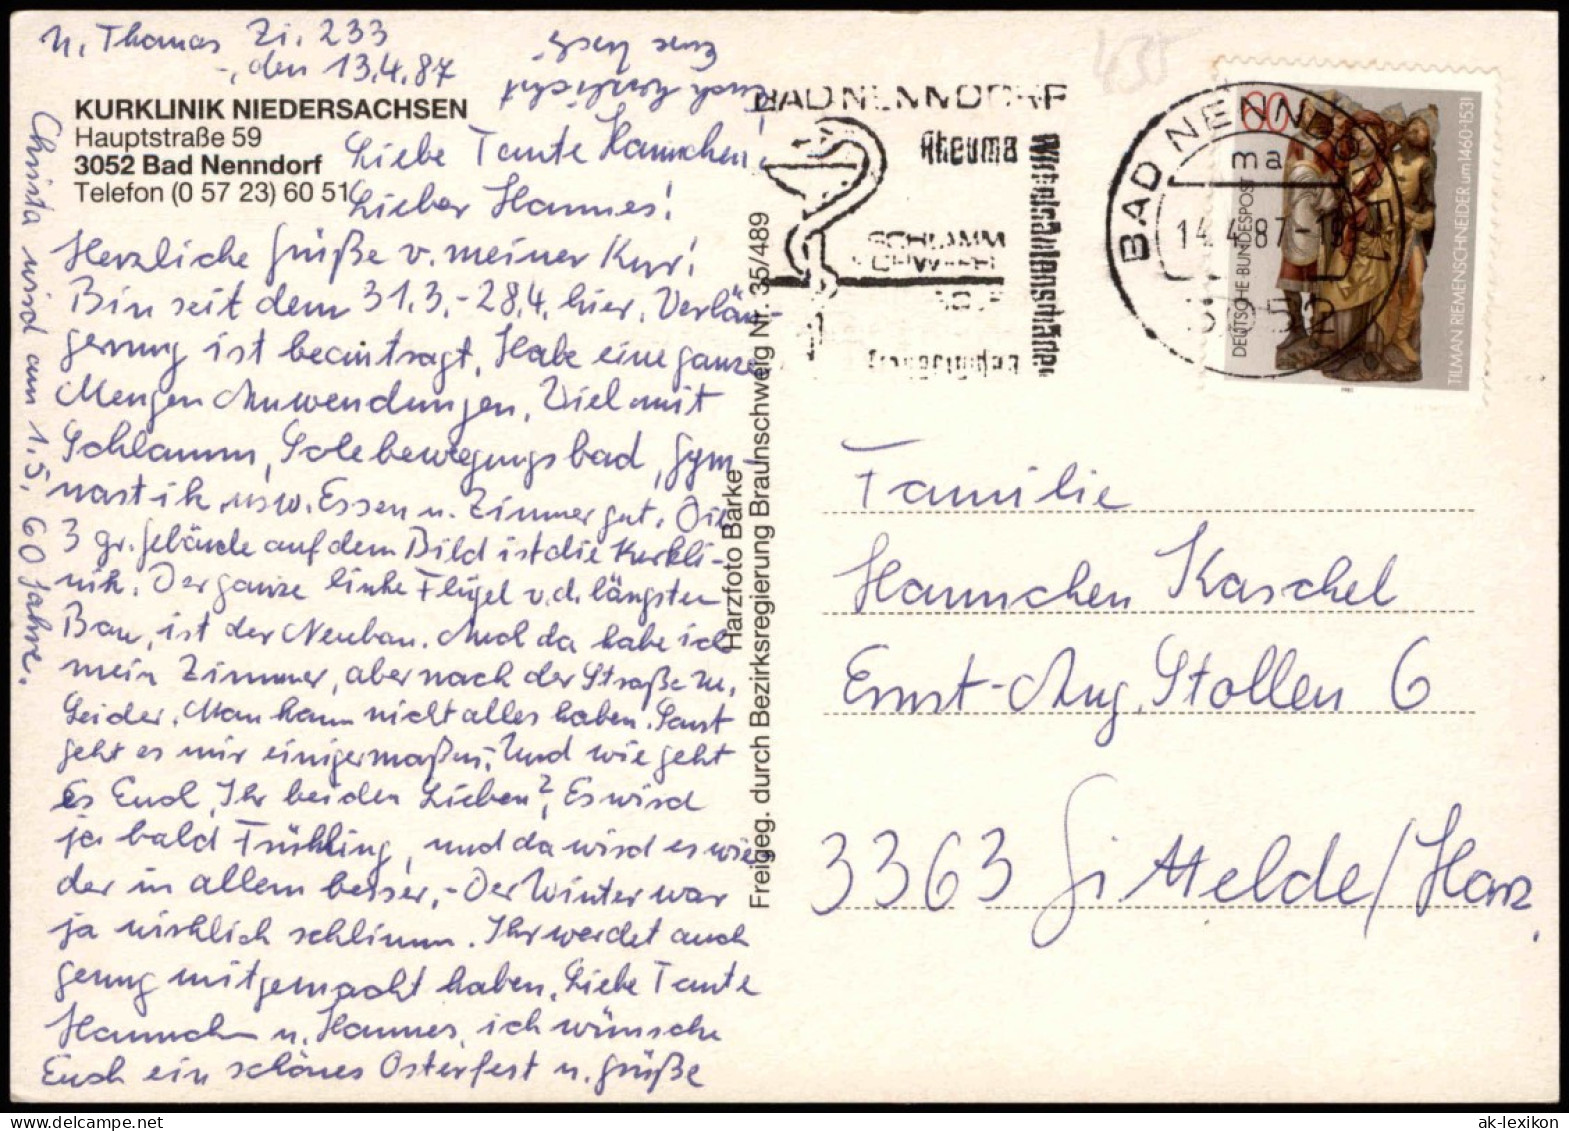 H. Thomas Zi. 233
-, den 13.4.87
KURKLINIK NIEDERSACHSEN
Hauptstraße 59
3052 Bad Nenndorf
Telefon (0 57 23) 60 51
Liebe Tante Hannchen!
Lieber Hannes!
Herzliche Grüße v. meiner Kur!
Bin seit dem 31.3.-28.4. hier. Verlän-
gerung ist beantragt. Habe eine ganze
Mengen Anwendungen. Viel mit
Schlamm, Solebewegungsbad, Gym-
nastik usw. Essen u. Zimmer gut. Die
3 gr. Gebäude auf dem Bild ist die Kurkli-
nik. Der ganze linke Flügel v. d. längsten
Bau, ist der Neubau. Auch da habe ich
mein Zimmer, aber nach der Straße zu,
Leider. Man kann nicht alles haben. Sonst
geht es mir einigermaßen. Und wie geht
es Euch, Ihr beiden Lieben? Es wird
ja bald Frühling, und da wird es wie-
der in allem besser. - Der Winter war
ja wirklich schlimm. Ihr werdet auch
genug mitgemacht haben. Liebe Tante
Hannchen u. Hannes, ich wünsche
Euch ein schönes Osterfest u. grüße
Euch herzlichst
Eure
Christa wird am 1.5. 60 Jahre.
Harzfoto Barke
Freigeg. durch Bezirksregierung Braunschweig Nr. 35/489
BAD NENNDORF
Rheuma
Wirbelsäulenschäden
SCHLAMM
SCHWEFEL
SOLE
BAD NENNDORF 1
ma
14.4.87-18
3052
80
DEUTSCHE BUNDESPOST
TILMAN RIEMENSCHNEIDER um 1460-1531
1981
Familie
Hannchen Kaschel
Ernst-Aug. Stollen 6
3363 Gittelde/Harz.
ak-lexikon